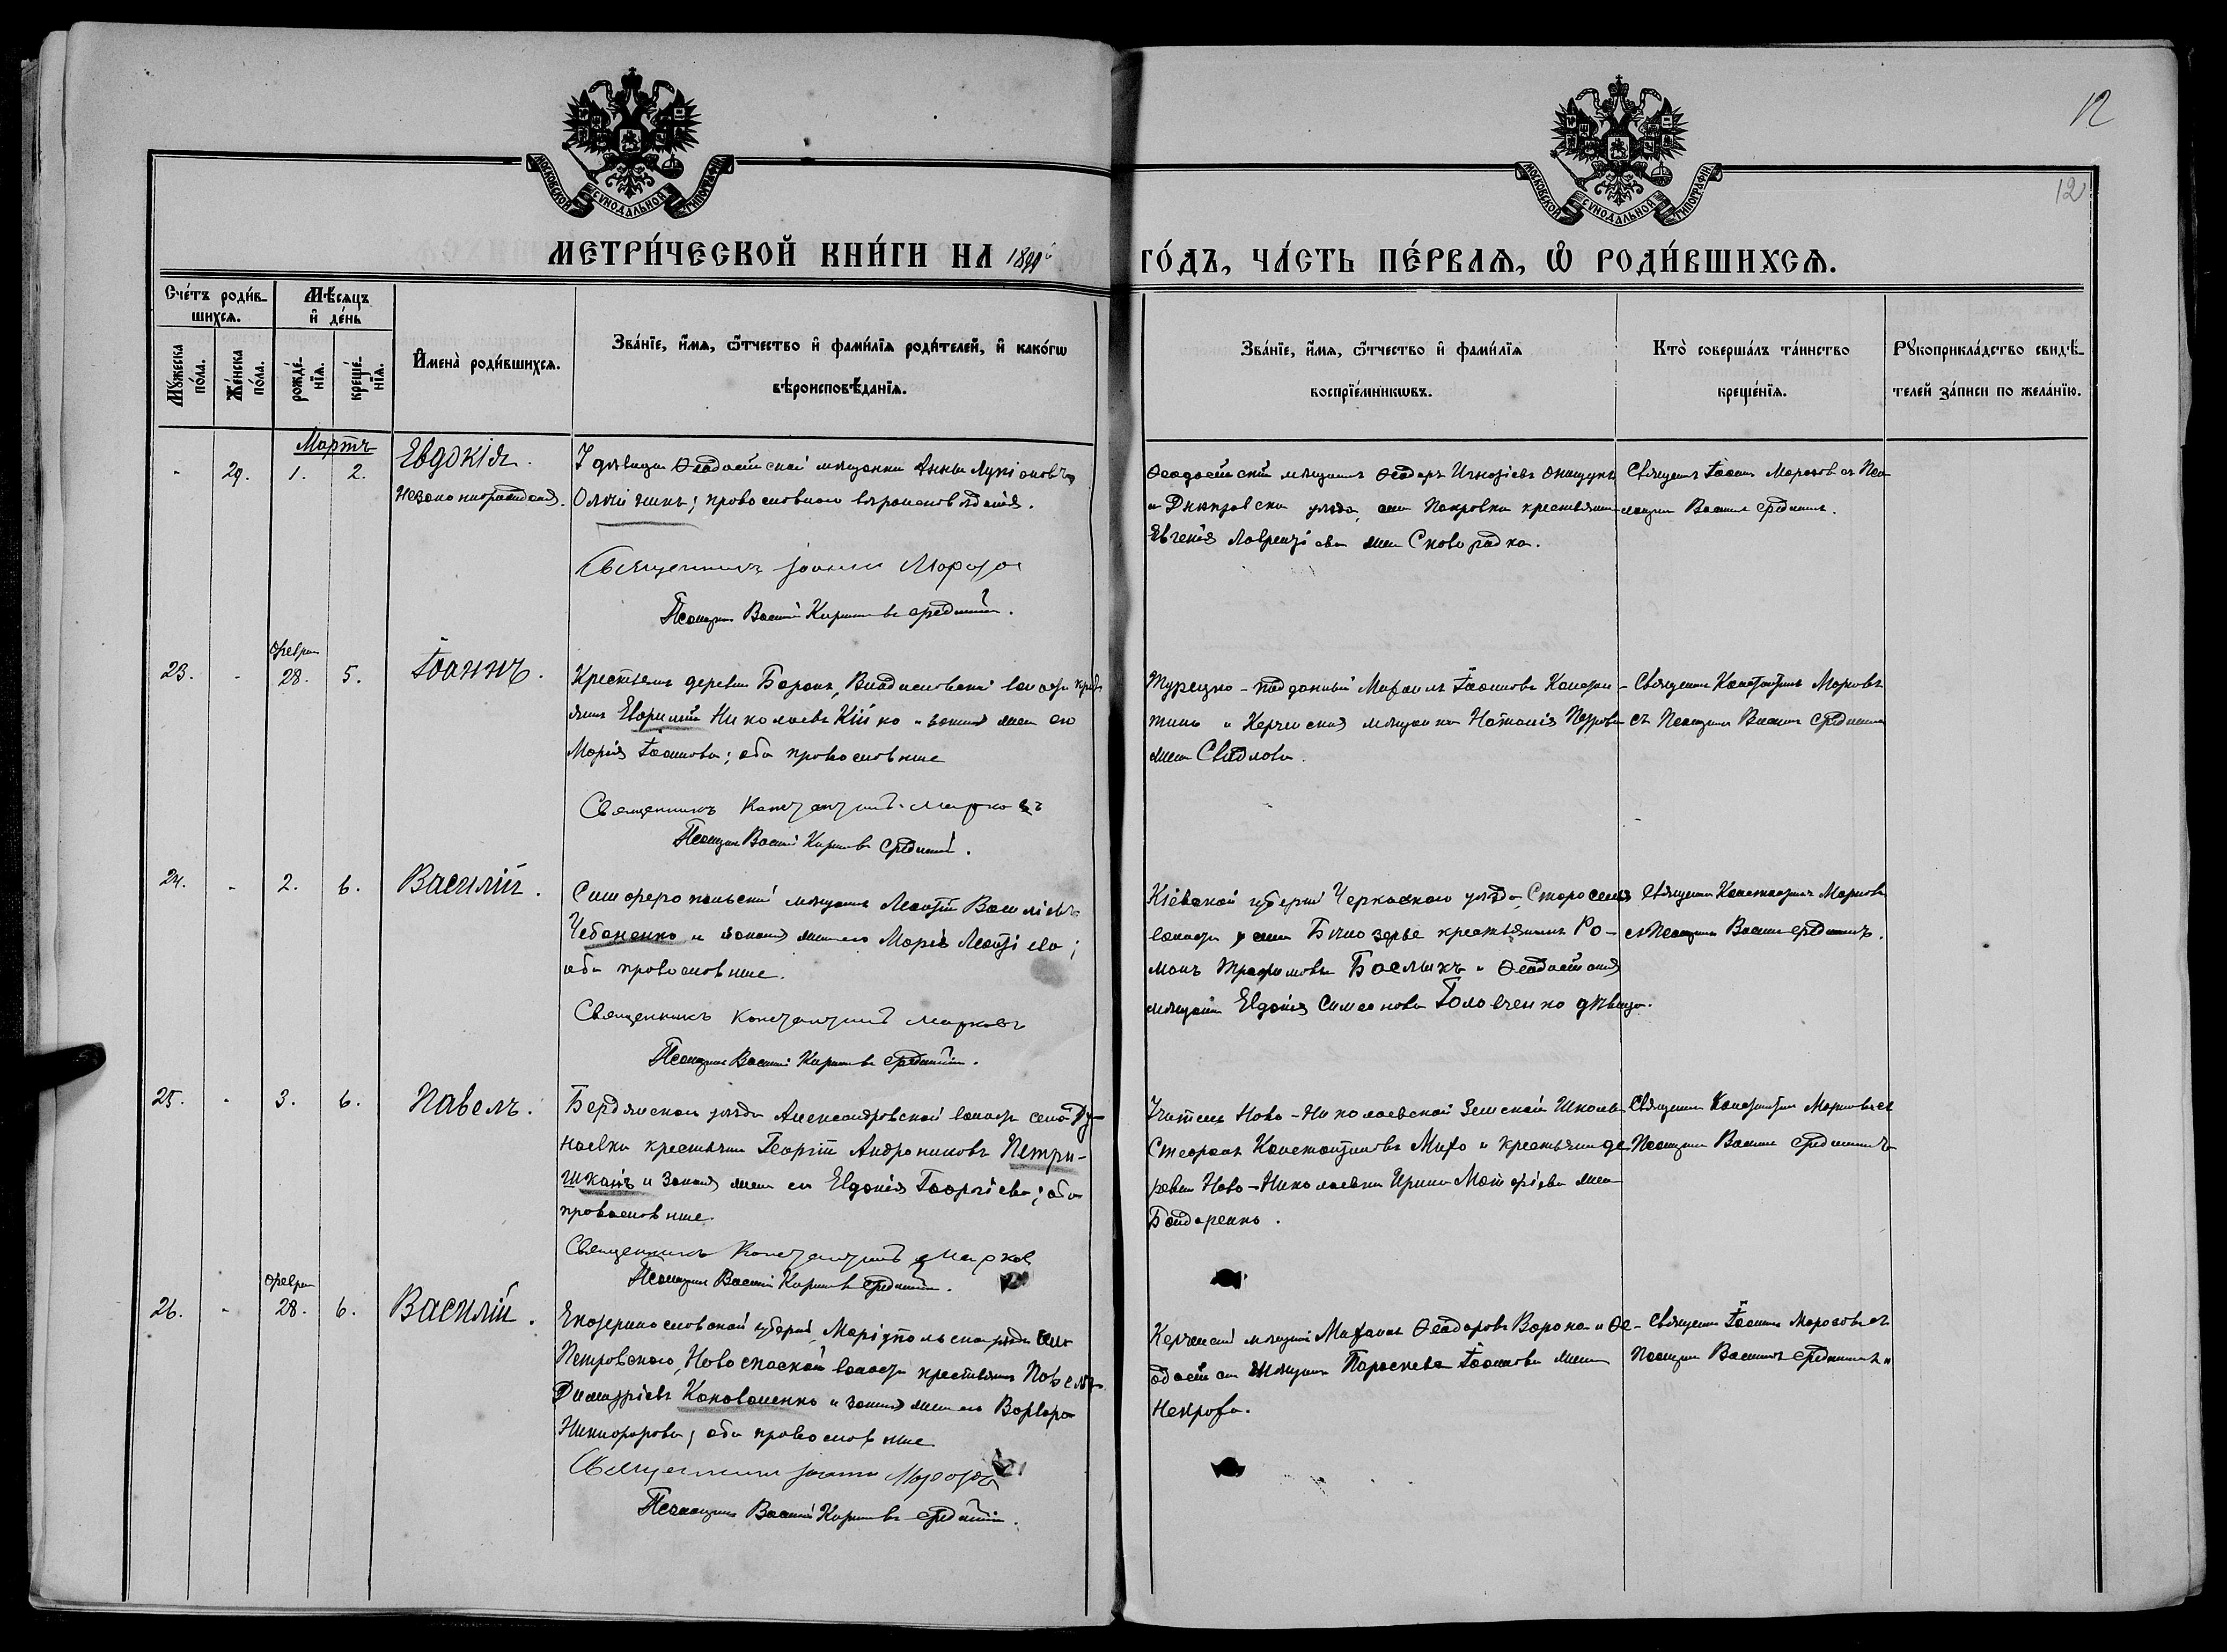 12
12
МОСКОВСКОЙ СѴНОДАЛЬНОЙ ТИПОГРАФІИ
МОСКОВСКОЙ СѴНОДАЛЬНОЙ ТИПОГРАФІИ
МЕТРИ́ЧЕСКОЙ КНИ́ГИ НА
ГО́ДЪ, ЧА́СТЬ ПЕ́РВАѦ, Ѡ҆ РОДИ́ВШИХСѦ.
Сче́тъ роди́в-
шихсѧ.
Мѣ́сѧцъ
и҆ де́нь
Мꙋ́жеска
по́ла.
Же́нска
по́ла.
рожде́-
нїѧ.
креще́-
нїѧ.
И҆мена̀ роди́вшихсѧ.
Зва́нїе, и҆́мѧ, ѻ҆́тчество и҆ фами́лїѧ роди́телей, и҆ како́гѡ
вѣроисповѣ́данїѧ.
Зва́нїе, и҆́мѧ, ѻ҆́тчество и҆ фами́лїѧ
воспрїе́мникѡвъ.
Кто̀ соверша́лъ та́инство
креще́нїѧ.
Рꙋкоприкла́дство свидѣ́-
телей за́писи по жела́нїю.
Мартъ
- 29. 1. 2. Евдокія.
Незаконнорожденная.
У дѣвицы Ѳеодосійской мѣщанки Анны
православнаго вѣроисповѣданія.
Священникъ Іоаннъ Морозов
Псаломщик Василій Кириловъ Средницкій.
Ѳеодосійскій мѣщанинъ Ѳеодоръ Игнатіевъ Онищукъ
и Днѣпровскаго уѣзда, села Покровки крестьянка
Евгенія Лаврентіева Сковородка.
Священ. Іоаннъ Морозовъ съ Псаломщ. Василіем Средницк.
Феврал.
23. - 28. 5. Іоаннъ.
Крестьянинъ деревни Баракъ, Владиславской волости
Евфимій Николаевъ Кійко и законная жена его
Марія Іоаннова; оба православные
Священникъ Константинъ Марковъ
Псаломщик Василій Кириловъ Средницкій.
Турецко-подданный Михаилъ Іоанновъ
и Керченская мѣщанка Наталія Петрова
Свѣдлова.
Священникъ Константинъ Марковъ
съ Псаломщик Василіем Средницким
24. - 2. 6. Василій.
Симферопольскій мѣщанинъ Леонтій Василіевъ
Чебаненко и законная жена его Марія Леонтіева;
оба православные.
Священникъ Константинъ Марковъ
Псаломщик Василій Кириловъ Средницкій.
Кіевской губерніи Черкасскаго уѣзда, Старосельс.
волости села Бѣлозерье крестьянинъ Ро-
манъ Трофимовъ Баслыкъ и Ѳеодосійская
мѣщанка Евдокія Симеонова Головченко дѣвица.
Священникъ Константинъ Марковъ
съ Псаломщик Василіем Средницкимъ.
25. - 3. 6. Павелъ.
Бердянскаго уѣзда Александровской волости села Ду-
наевки крестьянинъ Георгій Андрониковъ Петри-
шканъ и законная жена его Евдокія Георгіева; оба
православные.
Священникъ Константинъ Марков
Псаломщик Василій Кириловъ Средницкій.
Учитель Ново-Николаевской Земской Школы
Стефанъ Константиновъ Михо и крестьянка де
ревни Ново-Николаевки Ирина Матфіева
Бондаренко.
Священник Константинъ Марковъ съ
Псаломщик Василіем Средницкимъ
Феврал
26. - 28. 6. Василій.
Екатеринославской губерніи, Маріупольскаго уѣзда села
Петровскаго, Новоспаской волости крестьянинъ Павелъ
Димитріевъ Коноваленко и законная жена его Варвара
Никифорова; оба православные
Священникъ Іоаннъ Морозовъ
Псаломщик Василій Кириловъ Средницкій.
Керченскій мѣщанинъ Михаилъ Ѳеодоровъ Ворона и Ѳе-
одосійская мѣщанка Параскева Іоаннова
Священникъ Іоаннъ Морозовъ съ
Псаломщик Василіемъ Средницкимъ